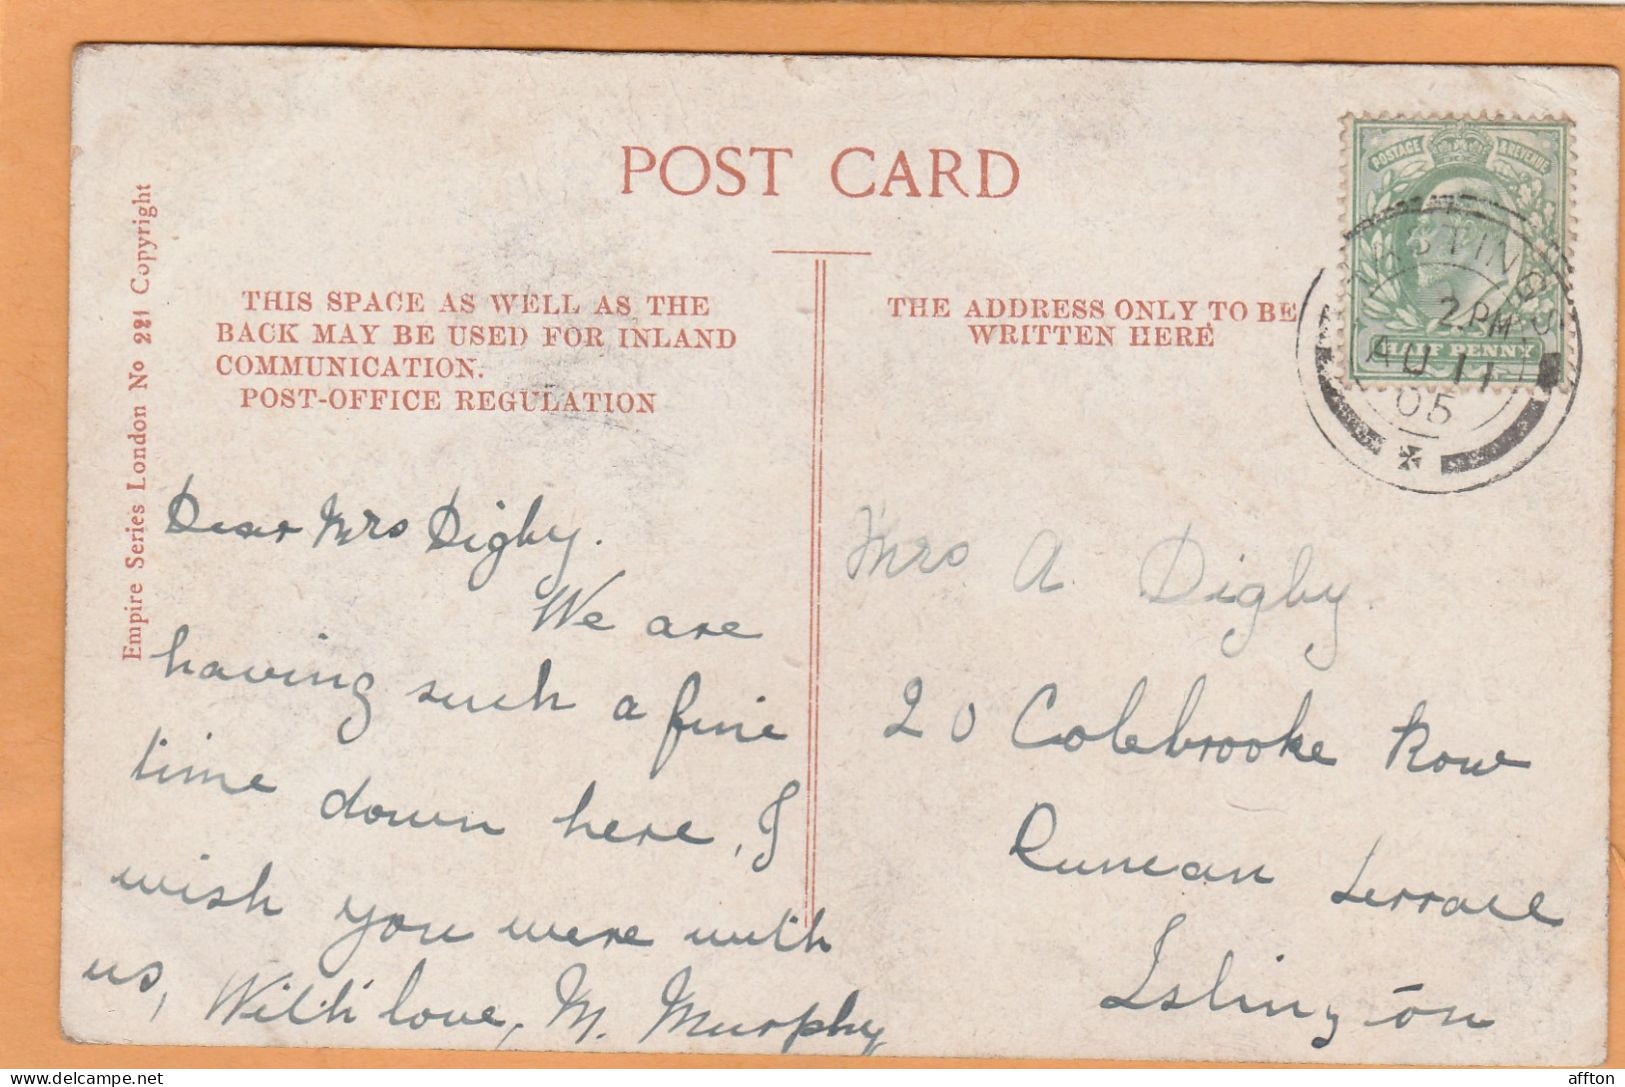 POST CARD
THIS SPACE AS WELL AS THE
BACK MAY BE USED FOR INLAND
COMMUNICATION.
POST-OFFICE REGULATION
THE ADDRESS ONLY TO BE
WRITTEN HERE
Empire Series London No 221 Copyright
POSTAGE & REVENUE
HALF PENNY
HASTINGS
2.PM
AU 11
05
Dear Mrs Digby.
We are
having such a fine
time down here, I
wish you were with
us, With love, M. Murphy
Mrs A Digby.
20 Colebrooke Row
Duncan Terrace
Islington
affton
delcampe.net